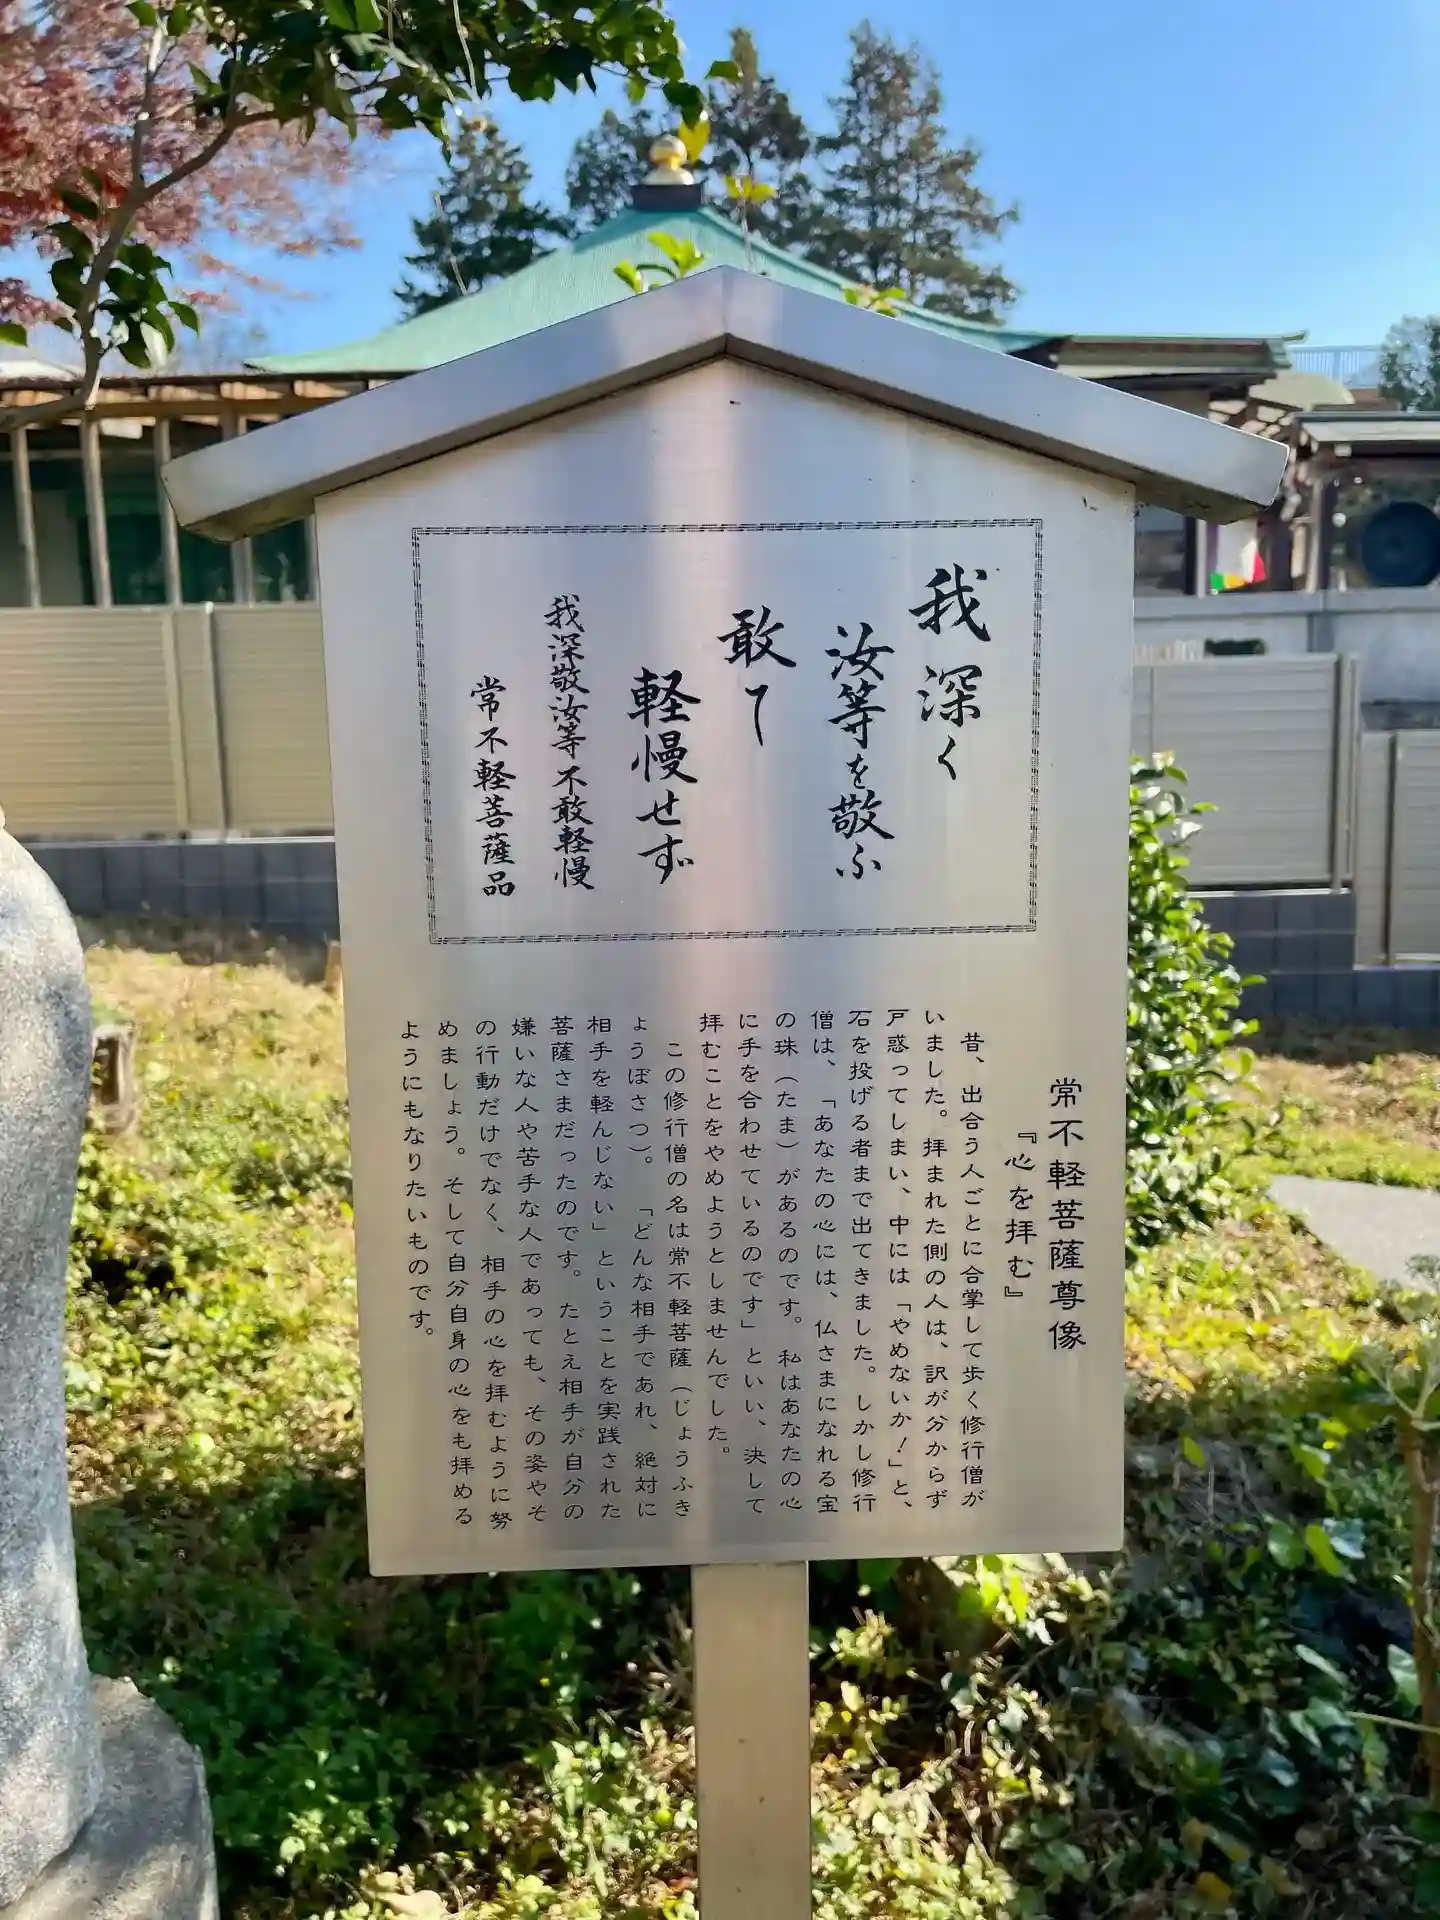 我深く
汝等を敬ふ
敢て
軽慢せず
我深敬汝等不敢軽慢
常不軽菩薩品
常不軽菩薩尊像
『心を拝む』
昔、出合う人ごとに合掌して歩く修行僧が
いました。拝まれた側の人は、訳が分からず
戸惑ってしまい、中には「やめないか！」と、
石を投げる者まで出てきました。しかし修行
僧は、「あなたの心には、仏さまになれる宝
の珠（たま）があるのです。私はあなたの心
に手を合わせているのです」といい、決して
拝むことをやめようとしませんでした。
この修行僧の名は常不軽菩薩（じょうふき
ょうぼさつ）。「どんな相手であれ、絶対に
相手を軽んじない」ということを実践された
菩薩さまだったのです。たとえ相手が自分の
嫌いな人や苦手な人であっても、その姿やそ
の行動だけでなく、相手の心を拝むように努
めましょう。そして自分自身の心をも拝める
ようにもなりたいものです。